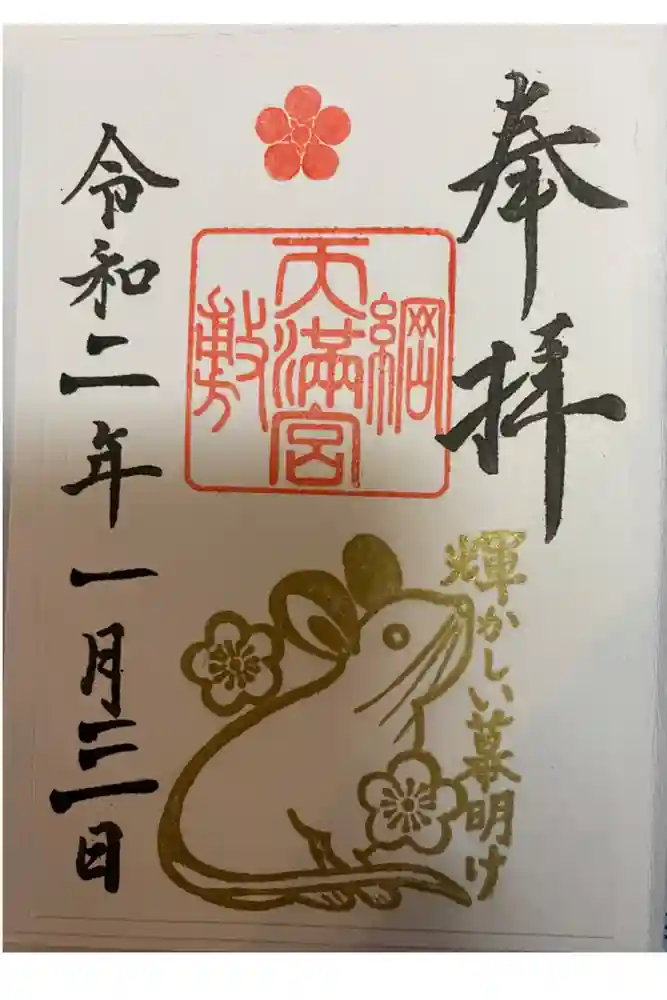 奉拝
綱敷天満宮
輝かしい幕明け
令和二年一月三日